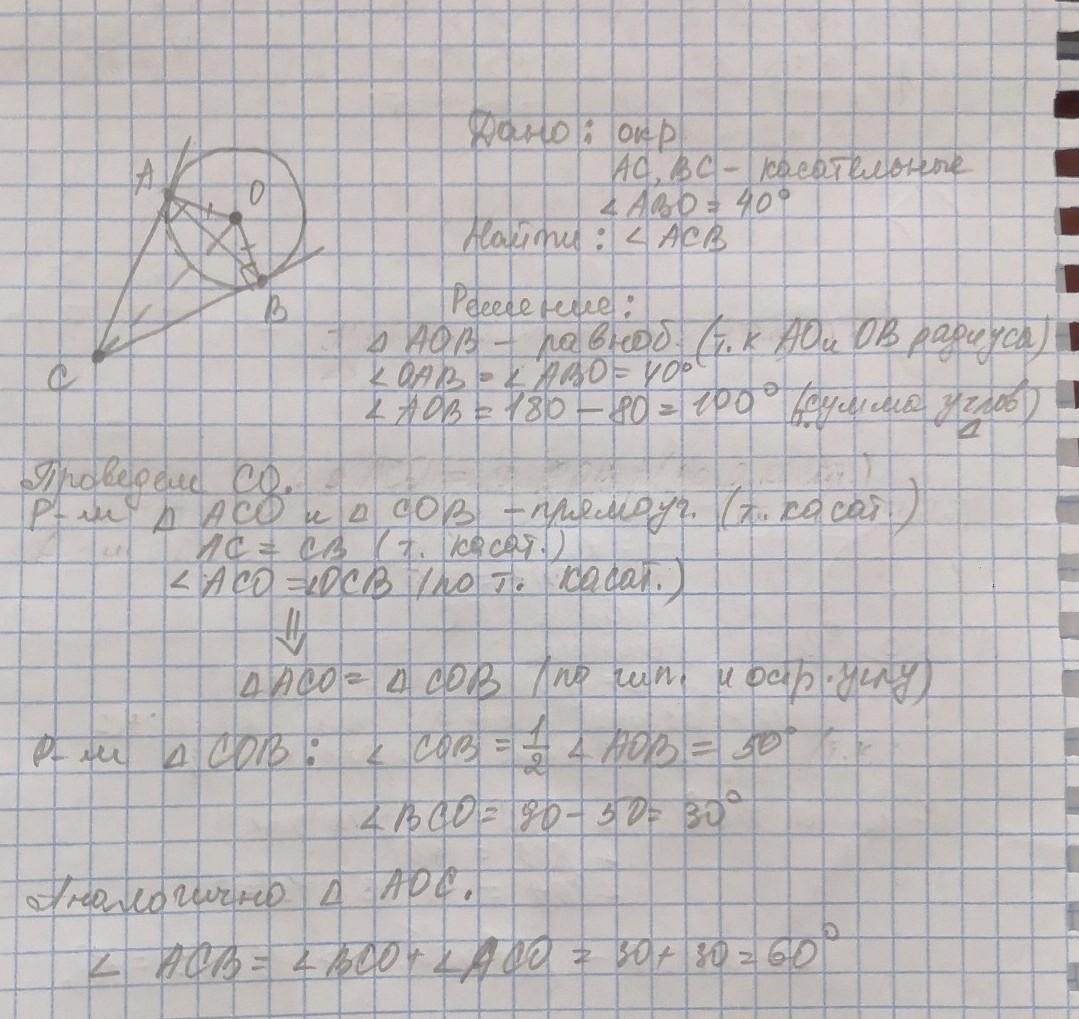 A
O
B
C
Дано: окр.
AC, BC - касательные
∠ABO = 40°
Найти: ∠ACB
Решение:
△ AOB - равноб. (т.к AO и OB радиуса)
∠OAB = ∠ABO = 40°
∠AOB = 180 - 80 = 100° (сумма углов)
△
Проведем CO.
Р-м △ ACO и △ COB - прямоуг. (т. касат.)
AC = CB (т. касат.)
∠ACO = ∠OCB (по т. касат.)
⇓
△ACO = △COB (по гип. и остр. углу)
Р-м △ COB: ∠ COB = 1/2 ∠ AOB = 50°
∠BCO = 90 - 50 = 30°
Аналогично △ AOC.
∠ ACB = ∠BCO + ∠ACO = 30 + 30 = 60°